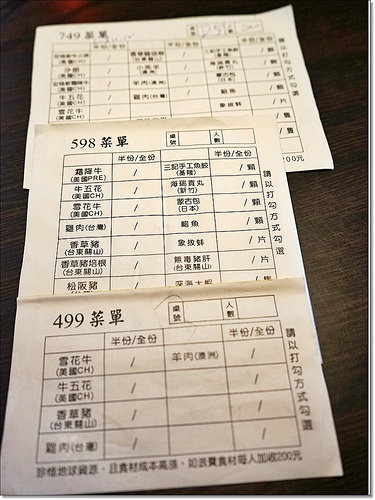 749 菜單
半份/全份
半份/全份
香草豬培根
(台東關山)
三記手工魚餃
(基隆)
/ 顆
小羔羊
(澳洲)
/ 顆
羊肉(澳洲)
蒙古包
(日本)
/ 顆
牛五花
(美國CH)
雞肉(台灣)
鮑魚
/ 顆
雪花牛
(美國CH)
象拔蚌
/ 片
/ 隻
請以打勾方式勾選
200元
598 菜單
桌號
人數
半份/全份
半份/全份
霜降牛
(美國PRE)
/
三記手工魚餃
(基隆)
/ 顆
牛五花
(美國CH)
/
海瑞貢丸
(新竹)
/ 顆
雪花牛
(美國CH)
/
蒙古包
(日本)
/ 顆
雞肉(台灣)
/
鮑魚
/ 顆
香草豬
(台東關山)
/
象拔蚌
/ 片
香草豬培根
(台東關山)
/
無毒豬肝
(台東關山)
/ 片
松阪豬
/
深海大蝦
/ 隻
請以打勾方式勾選
499 菜單
桌號
人數
半份/全份
半份/全份
雪花牛
(美國CH)
/
羊肉(澳洲)
/
牛五花
(美國CH)
/
/
香草豬
(台東關山)
/
/
雞肉(台灣)
/
/
請以打勾方式勾選
珍惜地球資源，且食材成本高漲，如浪費食材每人加收200元